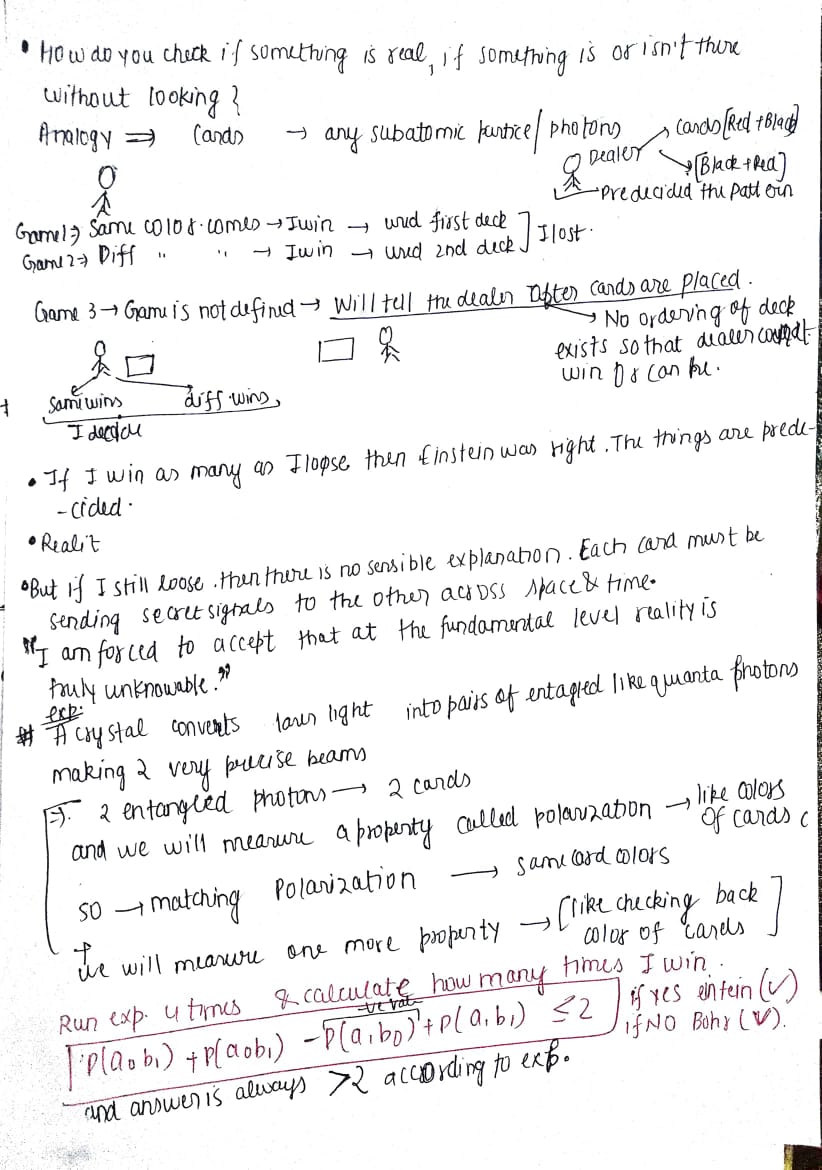 • How do you check if something is real, if something is or isn't there
without looking?
Analogy ⇒ Cards → any subatomic partice/photons
Dealer
Cards [Red + Black]
[Black + Red]
Predecided the patt
Game 1⇒ Same color comes → I win → used first deck
Game 2⇒ Diff " " → I win → used 2nd deck
] I lost.
Game 3 → Game is not defined → Will tell the dealer after cards are placed.
→ No ordering of deck
exists so that dealer
win or can be.
Same wins
diff. wins
I decide
• If I win as many as I loose then Einstein was right. The things are prede-
-cided.
• Realit
• But if I still loose. then there is no sensible explanation. Each card must be
sending secret signals to the other across space & time.
"I am forced to accept that at the fundamental level reality is
truly unknowable."
exp:
# A crystal converts laser light into pairs of entagled like quanta photons
making 2 very precise beams
⇒. 2 entangled photons → 2 cards
and we will measure a property called polarization → like colors
of cards
so → matching Polarization → same card colors
+
we will measure one more property → [like checking back
color of cards]
Run exp. 4 times & calculate how many times I win.
-ve val
P(a₀b₁) + P(a₀b₁) - P(a₁b₀) + P(a₁b₁) ≤ 2
if yes eintein (✓)
if NO Bohr (✓).
and answer is always >2 according to exp.